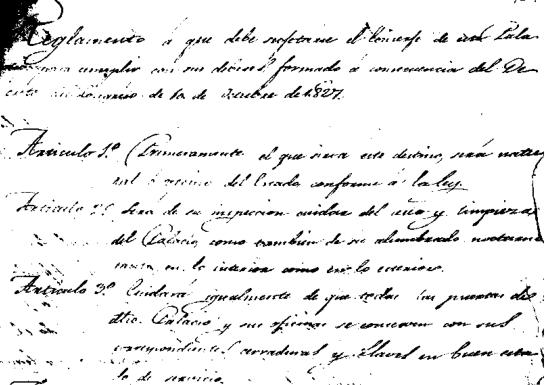 Reglamento á que debe sugetarse el Conserje de este Pala-
cio para cumplir con sus deberes formado á consecuencia del De-
creto de 10 de Octubre de 1827.
Articulo 1.º Primeramente el que sirva este destino, será natu-
ral ó vecino del Estado conforme á la ley.
Articulo 2.º Será de su inspeccion cuidar del aseo y limpieza
del Palacio, como tambien de su alumbrado nocturno
tanto en lo interior como en lo exterior.
Articulo 3.º Cuidará igualmente de que todas las puertas de
dho. Palacio y sus oficinas se conserven con sus
correspondientes cerraduras y llaves en buen esta-
do de servicio.